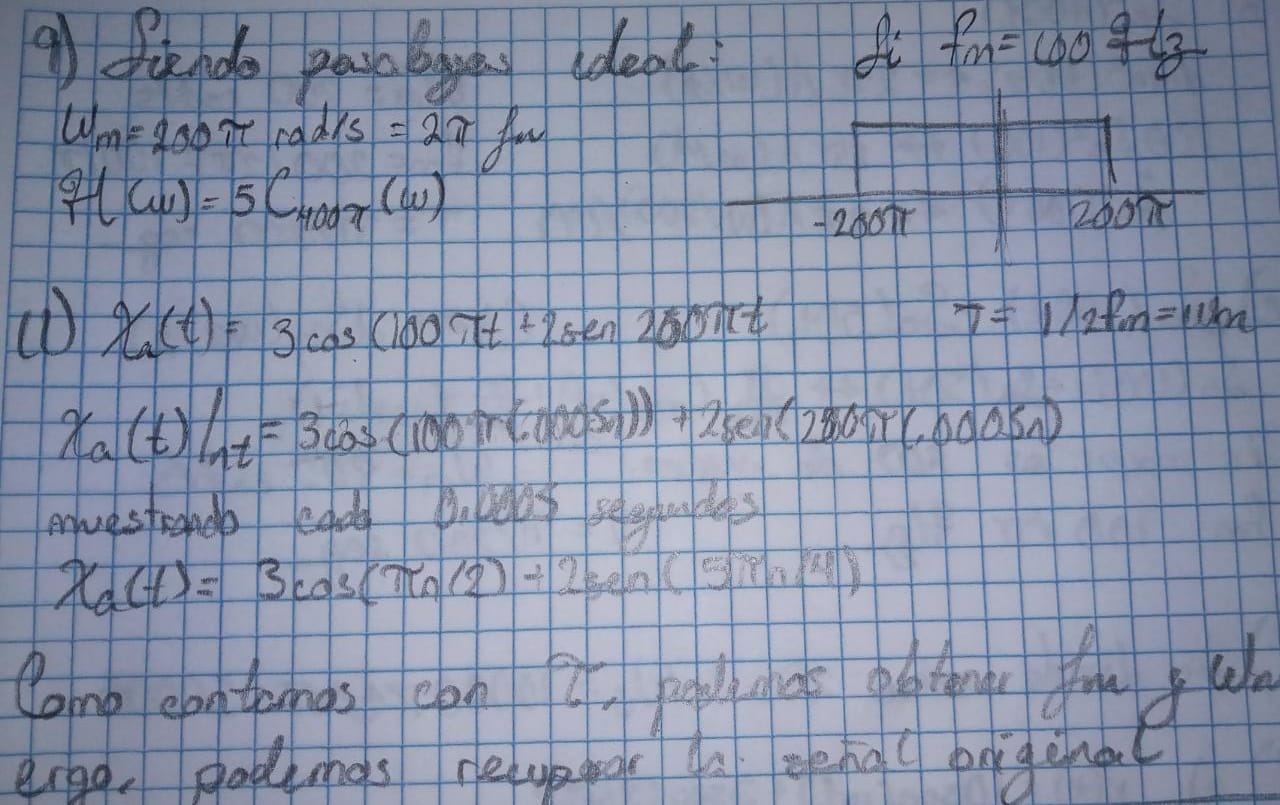 9) Siendo pasabajas ideal: Si fm=100 Hz
Wm=200π rad/s = 2π fm
H(w)=5C400π(w)
-200π 200π
Xa(t)= 3cos(100πt+2sen 250πt T= 1/2fm=
Xa(t)|nt= 3cos(100π(.0005n))+2sen(250π(.0005n)
muestreando cada 0.0005 segundos
Xa(t)= 3cos(πn/2)+2sen(5πn/4)
Como contamos con T, podemos obtener fm y
ergo, podemos recuperar la señal original